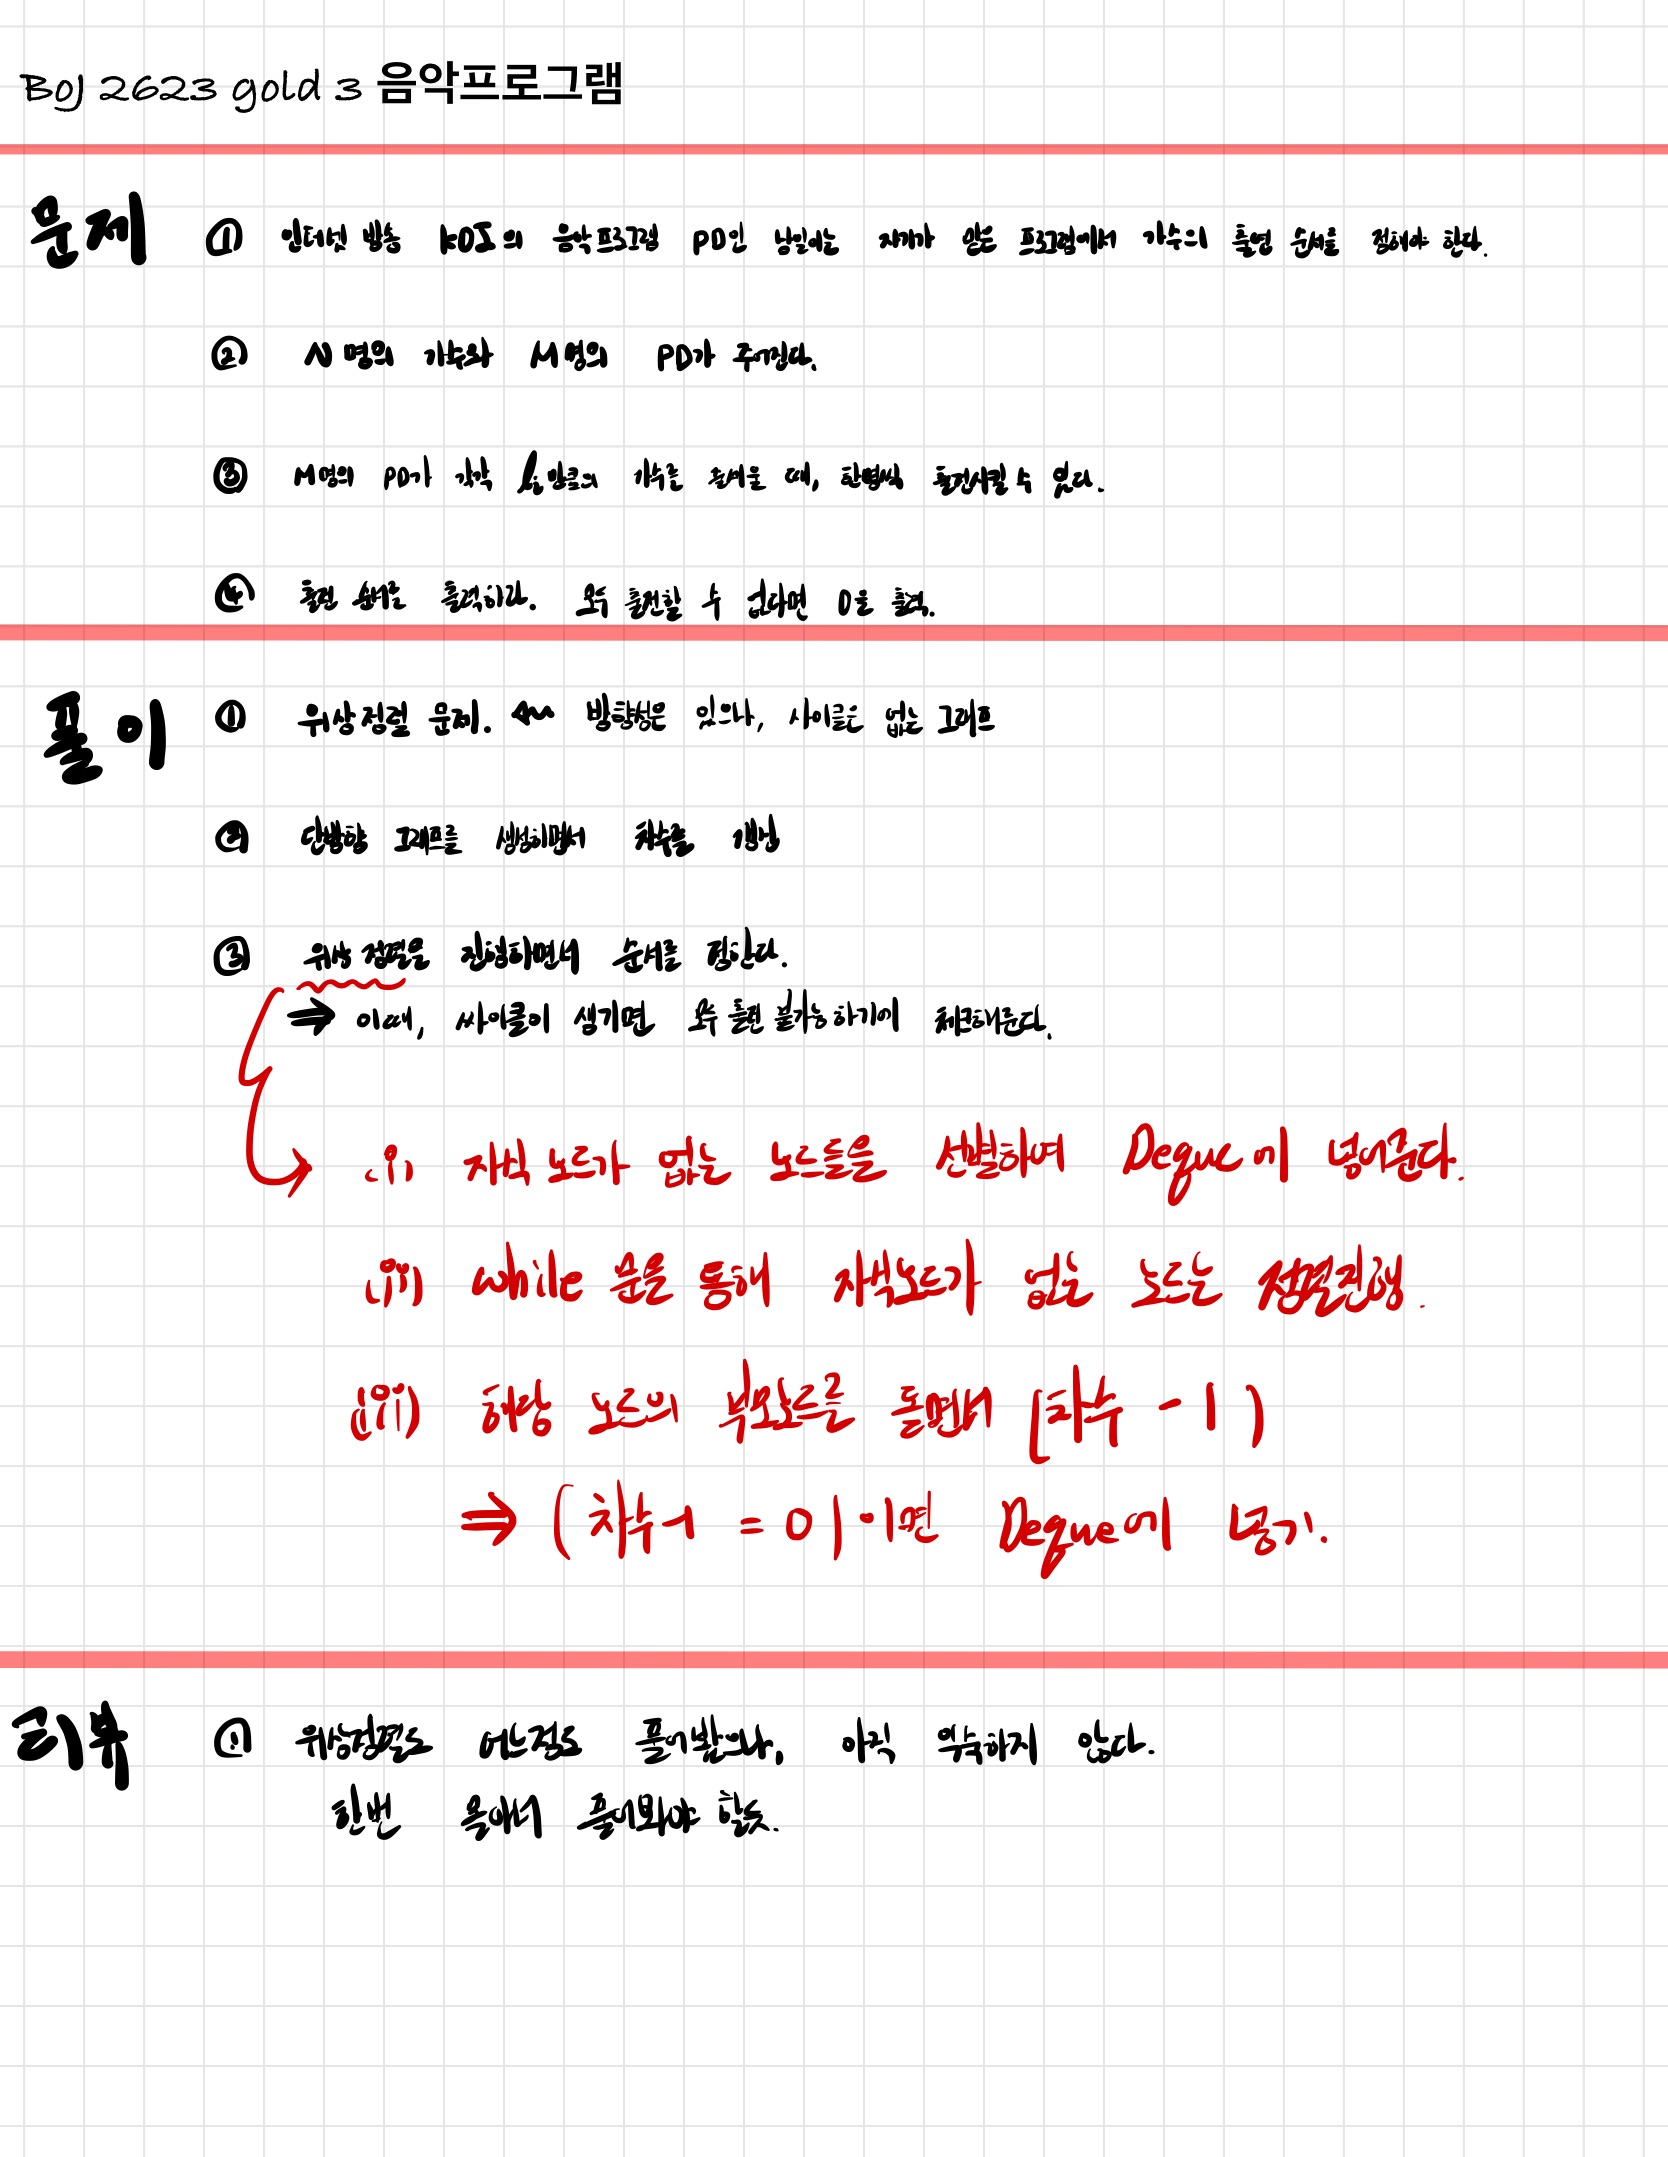 BOJ 2623 gold 3 음악프로그램
문제 ① 인터넷 방송 KOI의 음악프로그램 PD인 남일이는 자기가 맡은 프로그램에서 가수의 출연 순서를 정해야 한다.
② N명의 가수와 M명의 PD가 주어진다.
③ M명의 PD가 각각 만큼의 가수를 줄세울 때, 한명씩 출전시킬 수 있다.
④ 출전 순서를 출력하라. 모두 출전할 수 없다면 0을 출력.
풀이 ① 위상정렬 문제. 방향성은 있으나, 사이클은 없는 그래프
② 단방향 그래프를 생성하면서 차수를 갱신
③ 위상 정렬을 진행하면서 순서를 정한다.
⇒ 이때, 싸이클이 생기면 모두 출전 불가능하기에 체크해준다.
(i) 자식 노드가 없는 노드들을 선별하여 Deque에 넣어준다.
(ii) while 문을 통해 자식노드가 없는 노드는 정렬진행.
(iii) 해당 노드의 부모노드를 돌면서 (차수 - 1)
⇒ (차수-1 = 0)이면 Deque에 넣기.
리뷰 ① 위상정렬도 어느정도 풀어봤으나, 아직 익숙하지 않다.
한번 몰아서 풀어봐야 할듯.